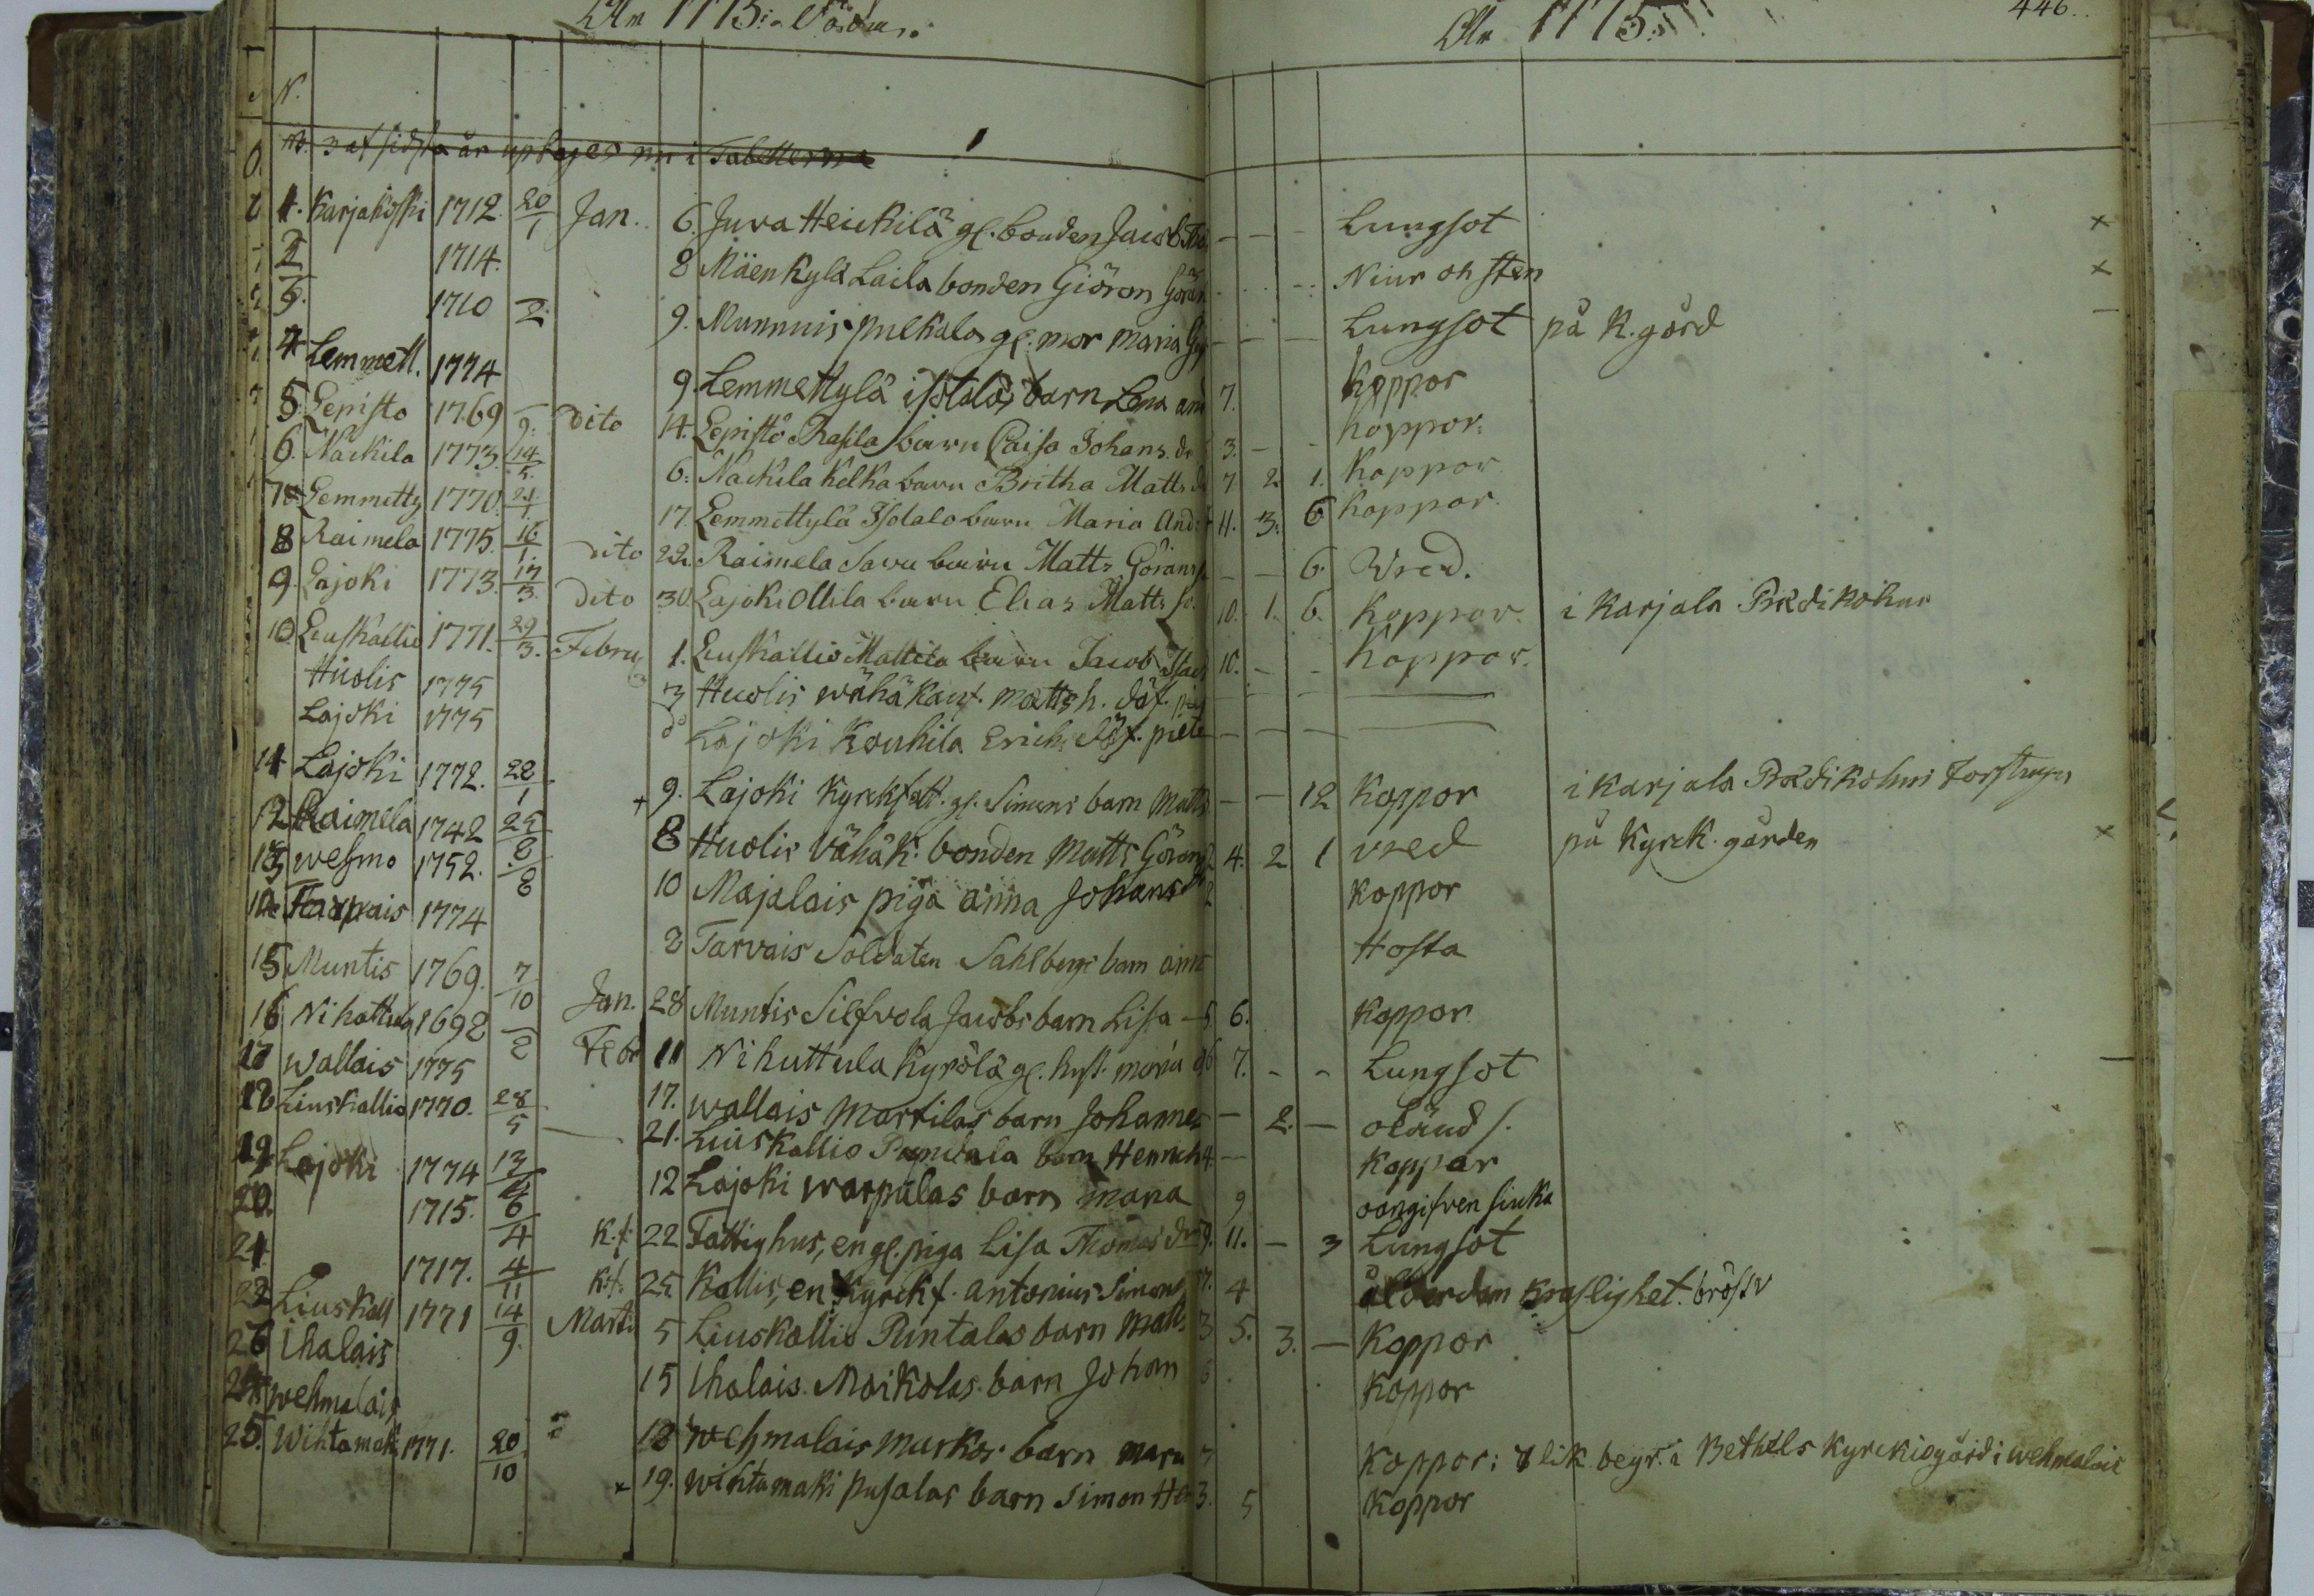 År 1775:
År 1775:
446.
N.
No. 3 af sidsta år uptages nu i Tabellerne
1. Karjakoski 1712. 20/1 Jan. 6. Juva Heickilä gl. bonden Jacob - - - Lungsot ×
2 1714. 8 Mäenkylä Laila bonden Giöran Göran - - Niur oh sten ×
3. 1710 2. 9. Munnuis pulkala gl. mor Maria - - - Lungsot på K. gård -
4 Lemmett. 1774 9. Lemmettylä isotalos barn Lena and 7. koppor
5. Lepistö 1769 9. dito 14. Lepistö Rasila barn Caisa Johans. 3. - - koppor.
6. Nackila 1773. 14/5. 6. Nackila Kelka barn Britha Matts d 7 2 1. Koppor.
7. Lemmetty 1770. 21/1. 17. Lemmettylä Isotalo barn Maria And: 4. 3. 6 koppor.
8 Raimela 1775. 16/1. dito 22. Raimela Savu barn Matts Görans - - 6. Wred.
9. Lajoki 1773. 17/3. dito 30. Lajoki Ollila barn Elias Matts so. 10. 1. 6. Koppor. i Karjala Prædikohus
10. Liuskallio 1771. 29/3. Febru 1. Liuskallio Mattila barn Jacob Isacs 10. - - Koppor.
Huolis 1775 3 Huolis wähäkaut. Matts h. döf. - - -
Lajoki 1775 d Lajoki Kouhila Erichs döf. - - -
11 Lajoki 1772. 22/1 + 9. Lajoki Kyrckfatt. gl. Simons barn Matts - - 12 Koppor i Karjala Prædikohus
12 Raimela 1742 25/8 8 Huolis Vähäk. bonden Matts Görans 4. 2 1 vred på Kyrck. gården ×
13 wehmo 1752. 8 10 Majalais piga anna Johans koppor
14 Tarvais 1774 2 Tarvais Soldaten Sahlbergs barn ann Hosta
15 Muntis 1769. 7/10 Jan. 28 Muntis Silfvola Jacobs barn Lisa - 5. 6. Koppor
16 Nihattula 1692 2 Febr 11 Nihuttula Kyrölä gl. hust. maria 7. - - Lungsot -
17 Wallais 1775 17. Wallais Martilas barn Johannes - 2. - okänd s.
18 Liuskallio 1770. 28/5 21. Liuskallio Puntala barn Henrich 4. - Koppor
19 Lajoki 1774 13 12 Lajoki warpulas barn maria 9 oangifven siuka
20. 1715. 6/4 K.f. 22 Fattighus, en gl. piga Lisa Thomas dr 9. 11. - 3 Lungsot
21 1717. 4/11 K.f. 25 Kallis, en Kyrckf. antonius Simons 4 ålderdom Kraslighet. bröstv
22 Liuskall 1771 14/9. Marti 5 Liuskallio Puntalas barn Matts 3 5. 3. - Koppor
23 Ihalais 15 Ihalais. Maikolas barn Johan 6 Koppor
24 wehmalais 18 Wehmalais Markos barn Maria 7 Koppor: lik begr. i Bethels Kyrckiogård i wehmalais
25. Wihtamaki 1771. 20/10 × 19. Wihtamaki Pusalas barn Simon 3. 5 Koppor